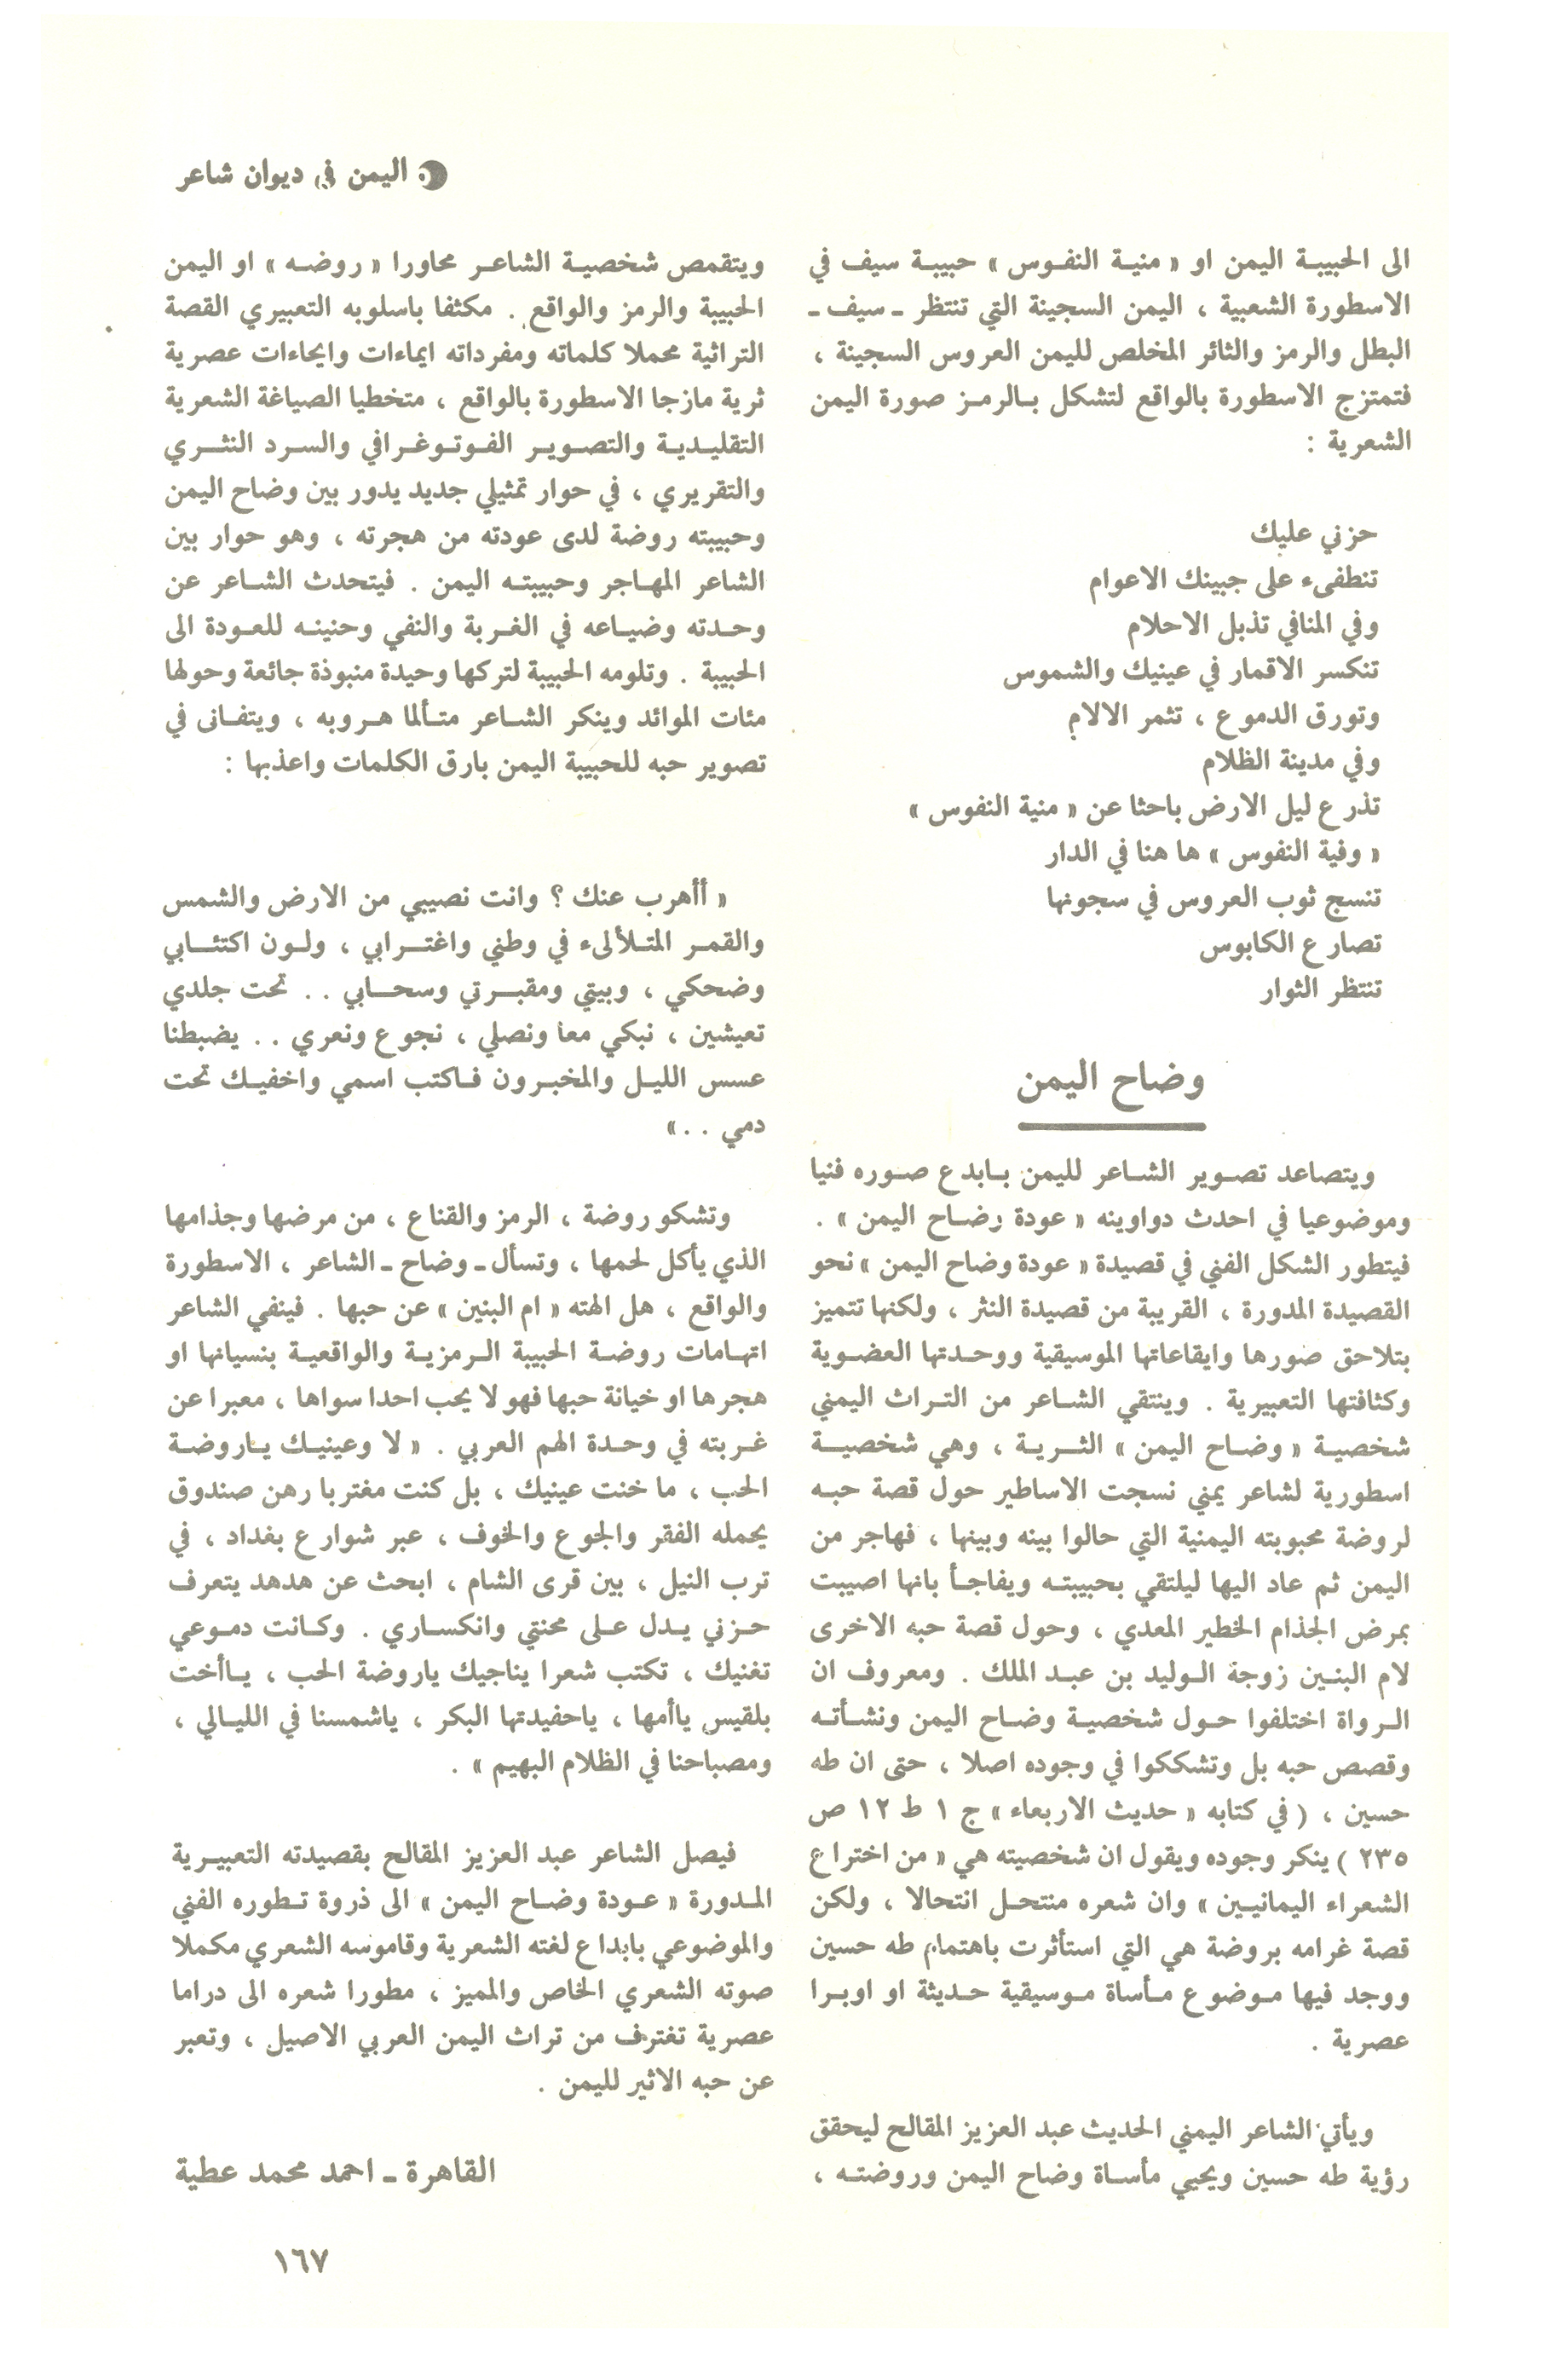 اليمن في ديوان شاعر
الى الحبيبة اليمن او « منية النفوس » حبيبة سيف في
الاسطورة الشعبية ، اليمن السجينة التي تنتظر ـ سيف ـ
البطل والرمز والثائر المخلص لليمن العروس السجينة ،
فتمتزج الاسطورة بالواقع لتشكل بالرمز صورة اليمن
الشعرية :
حزني عليك
تنطفىء على جبينك الاعوام
وفي المنافي تذبل الاحلام
تنكسر الاقمار في عينيك والشموس
وتورق الدموع ، تثمر الالام
وفي مدينة الظلام
تذرع ليل الارض باحثا عن « منية النفوس »
« وفية النفوس » ها هنا في الدار
تنسج ثوب العروس في سجونها
تصارع الكابوس
تنتظر الثوار
وضاح اليمن
ويتصاعد تصوير الشاعر لليمن بابدع صوره فنيا
وموضوعيا في احدث دواوينه « عودة رضاح اليمن » .
فيتطور الشكل الفني في قصيدة « عودة وضاح اليمن » نحو
القصيدة المدورة ، القريبة من قصيدة النثر ، ولكنها تتميز
بتلاحق صورها وايقاعاتها الموسيقية ووحدتها العضوية
وكثافتها التعبيرية . وينتقي الشاعر من التراث اليمني
شخصية « وضاح اليمن » الثرية ، وهي شخصية
اسطورية لشاعر يمني نسجت الاساطير حول قصة حبه
لروضة محبوبته اليمنية التي حالوا بينه وبينها ، فهاجر من
اليمن ثم عاد اليها ليلتقي بحبيبته ويفاجأ بانها اصيبت
بمرض الجذام الخطير المعدي ، وحول قصة حبه الاخرى
لام البنين زوجة الوليد بن عبد الملك . ومعروف ان
الرواة اختلفوا حول شخصية وضاح اليمن ونشأته
وقصص حبه بل وتشككوا في وجوده اصلا ، حتى ان طه
حسين ، ( في كتابه « حديث الاربعاء » ج ١ ط ١٢ ص
٢٣٥ ) ينكر وجوده ويقول ان شخصيته هي « من اختراع
الشعراء اليمانيين » وان شعره منتحل انتحالا ، ولكن
قصة غرامه بروضة هي التي استأثرت باهتمام طه حسين
ووجد فيها موضوع مأساة موسيقية حديثة او اوبرا
عصرية .
ويأتي الشاعر اليمني الحديث عبد العزيز المقالح ليحقق
رؤية طه حسين ويحيي مأساة وضاح اليمن وروضته ،
ويتقمص شخصية الشاعر محاورا « روضه » او اليمن
الحبيبة والرمز والواقع . مكثفا باسلوبه التعبيري القصة
التراثية محملا كلماته ومفرداته ايماءات وايحاءات عصرية
ثرية مازجا الاسطورة بالواقع ، متخطيا الصياغة الشعرية
التقليدية والتصوير الفوتوغرافي والسرد النثري
والتقريري ، في حوار تمثيلي جديد يدور بين وضاح اليمن
وحبيبته روضة لدى عودته من هجرته ، وهو حوار بين
الشاعر المهاجر وحبيبته اليمن . فيتحدث الشاعر عن
وحدته وضياعه في الغربة والنفي وحنينه للعودة الى
الحبيبة . وتلومه الحبيبة لتركها وحيدة منبوذة جائعة وحولها
مئات الموائد وينكر الشاعر متألما هروبه ، ويتفانى في
تصوير حبه للحبيبة اليمن بارق الكلمات واعذبها :
« أأهرب عنك ؟ وانت نصيبي من الارض والشمس
والقمر المتلألىء في وطني واغترابي ، ولون اكتئابي
وضحكي ، وبيتي ومقبرتي وسحابي . . تحت جلدي
تعيشين ، نبكي معا ونصلي ، نجوع ونعري . . يضبطنا
عسس الليل والمخبرون فاكتب اسمي واخفيك تحت
دمي . . »
وتشكو روضة ، الرمز والقناع ، من مرضها وجذامها
الذي يأكل لحمها ، وتسأل ـ وضاح ـ الشاعر ، الاسطورة
والواقع ، هل الهته « ام البنين » عن حبها . فينفي الشاعر
اتهامات روضة الحبيبة الرمزية والواقعية بنسيانها او
هجرها او خيانة حبها فهو لا يحب احدا سواها ، معبرا عن
غربته في وحدة الهم العربي . « لا وعينيك ياروضة
الحب ، ما خنت عينيك ، بل كنت مغتربا رهن صندوق
يحمله الفقر والجوع والخوف ، عبر شوارع بغداد ، في
ترب النيل ، بين قرى الشام ، ابحث عن هدهد يتعرف
حزني يدل على محنتي وانكساري . وكانت دموعي
تغنيك ، تكتب شعرا يناجيك ياروضة الحب ، ياأخت
بلقيس ياأمها ، ياحفيدتها البكر ، ياشمسنا في الليالي ،
ومصباحنا في الظلام البهيم » .
فيصل الشاعر عبد العزيز المقالح بقصيدته التعبيرية
المدورة « عودة وضاح اليمن » الى ذروة تطوره الفني
والموضوعي بابداع لغته الشعرية وقاموسه الشعري مكملا
صوته الشعري الخاص والمميز ، مطورا شعره الى دراما
عصرية تغترف من تراث اليمن العربي الاصيل ، وتعبر
عن حبه الاثير لليمن .
القاهرة ـ احمد محمد عطية
١٦٧